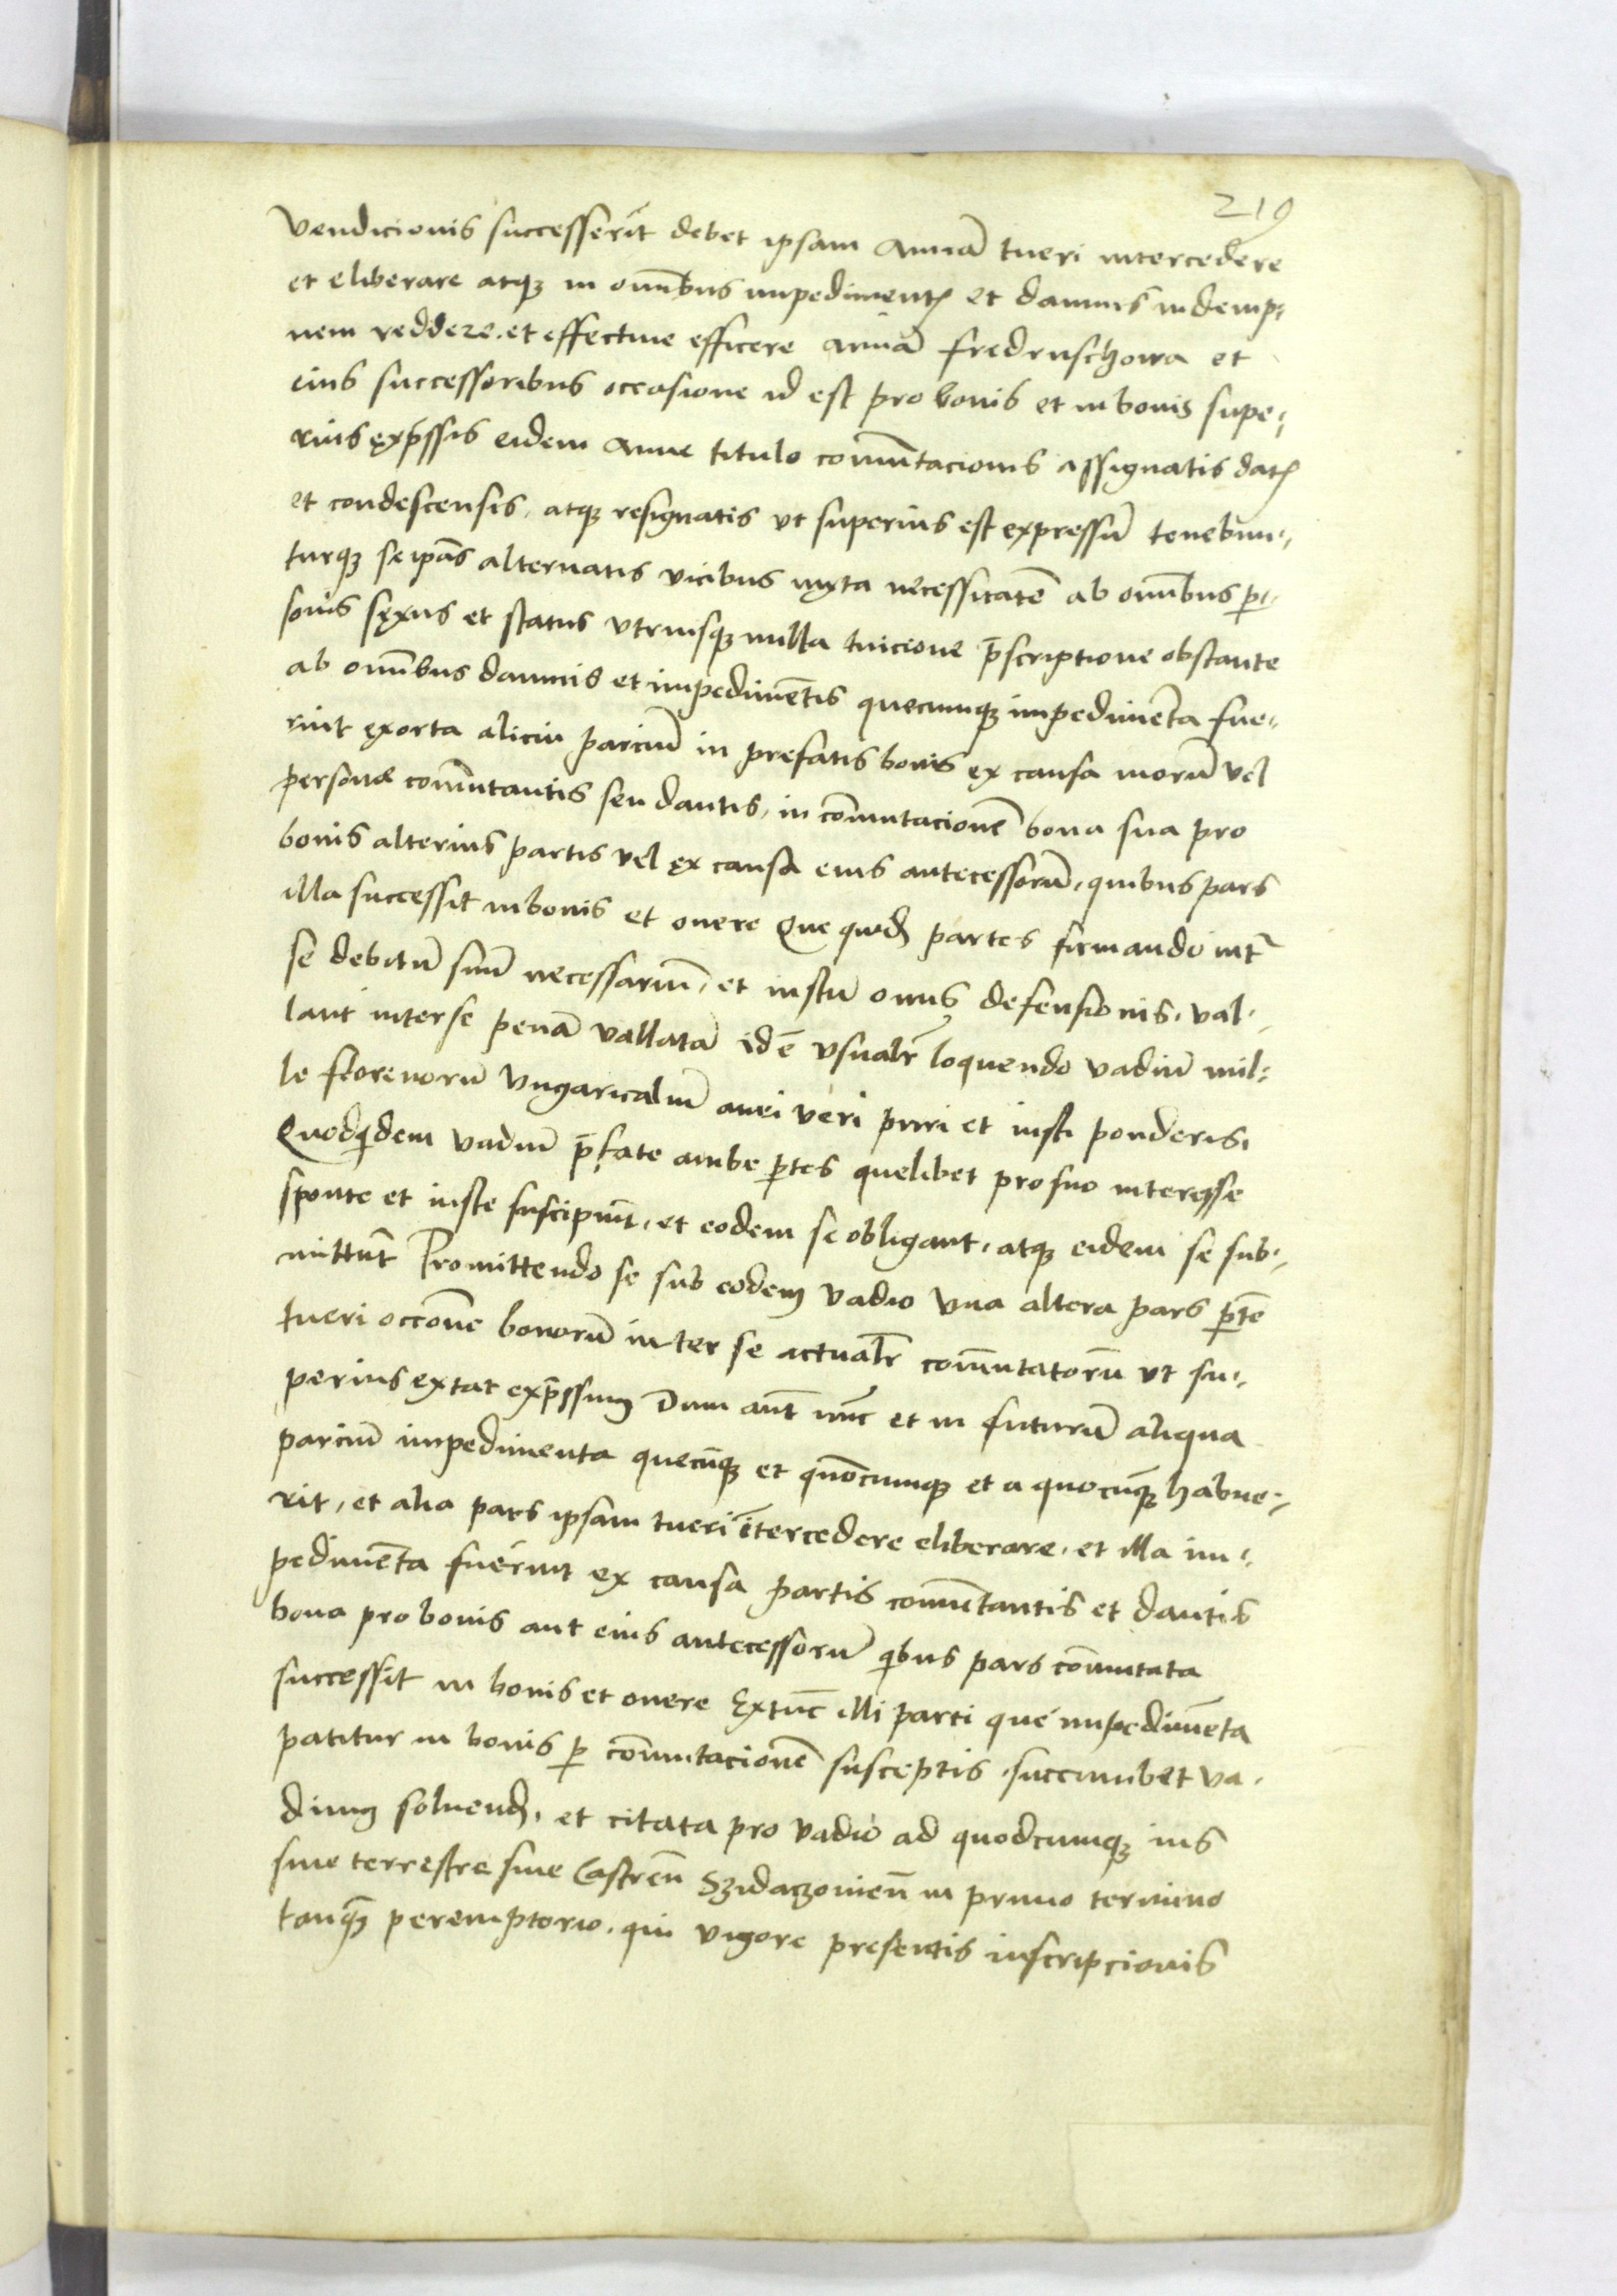 219
vendicionis successerīt debet ipsam Annā tueri intercedere
et eliberare atqꝫ in om̄ībus impedimentꝭ et damnis indemp-
nem reddere. et effectiue efficere Annā Fredruschowa et
eius successoribus occasione id est pro bonis et in bonis supe-
rius exp̄ssis eidem Anne titulo com̄utacionis assignatis datꝭ
et condescensis, atqꝫ resignatis vt superius est expressū tenebun-
turqꝫ seip̄as alternatis vicibus iuxta necessitatē ab om̄ībus ꝑ-
sonis sexus et status vtriusqꝫ nulla tuicione p̄scriptione obstante
ab om̄ībus damnis et impedimētis quecumqꝫ impedimēta fue-
rint exorta alicui parciū in prefatis bonis ex causa morū vel
persone com̄utantis seu dantis, in com̄utacionē bona sua pro
bonis alterius partis vel ex causa eius antecessorū, quibus pars
illa successit in bonis et onere Que quidꝫ partes firmando int̄
se debitū suū necessariū, et iustū onus defensionis, val-
lant inter se penā vallatā id ē vsualr̄ loquendo vadiū mil-
le florenorū Vngaricaliū auri veri puri et iusti ponderis,
Quodqͥdem vadiū p̄fate ambe ꝑtes quelibet pro suo interesse
sponte et iuste suscipiūt, et eodem se obligant, atqꝫ eidem se sub-
mittūt Promittendo se sub eodem vadio vna altera pars ꝑtē
tueri occōne bonorū inter se actualr̄ com̄utatorū vt su-
perius extat exp̄ssum Dum aūt nūc et in futurū aliqua
parciū impedimenta quecūqꝫ et quōcumqꝫ et a quocūqꝫ habue-
rit, et alia pars ipsam tueri ītercedere eliberare, et illa im-
pedimēta fuerint ex causa partis com̄utantis et dantis
bona pro bonis aut eius antecessorū qͥbus pars com̄utata
successit in bonis et onere Extūc illi parti que impedimēta
patitur in bonis ꝑ com̄utacionē susceptis, succumbet va-
dium soluendꝫ, et citata pro vadio ad quodcumqꝫ ius
siue terrestre siue Castren̄ Szidaczouien̄ in primo termino
tanqꝫ peremptorio, qui vigore presentis inscripcionis